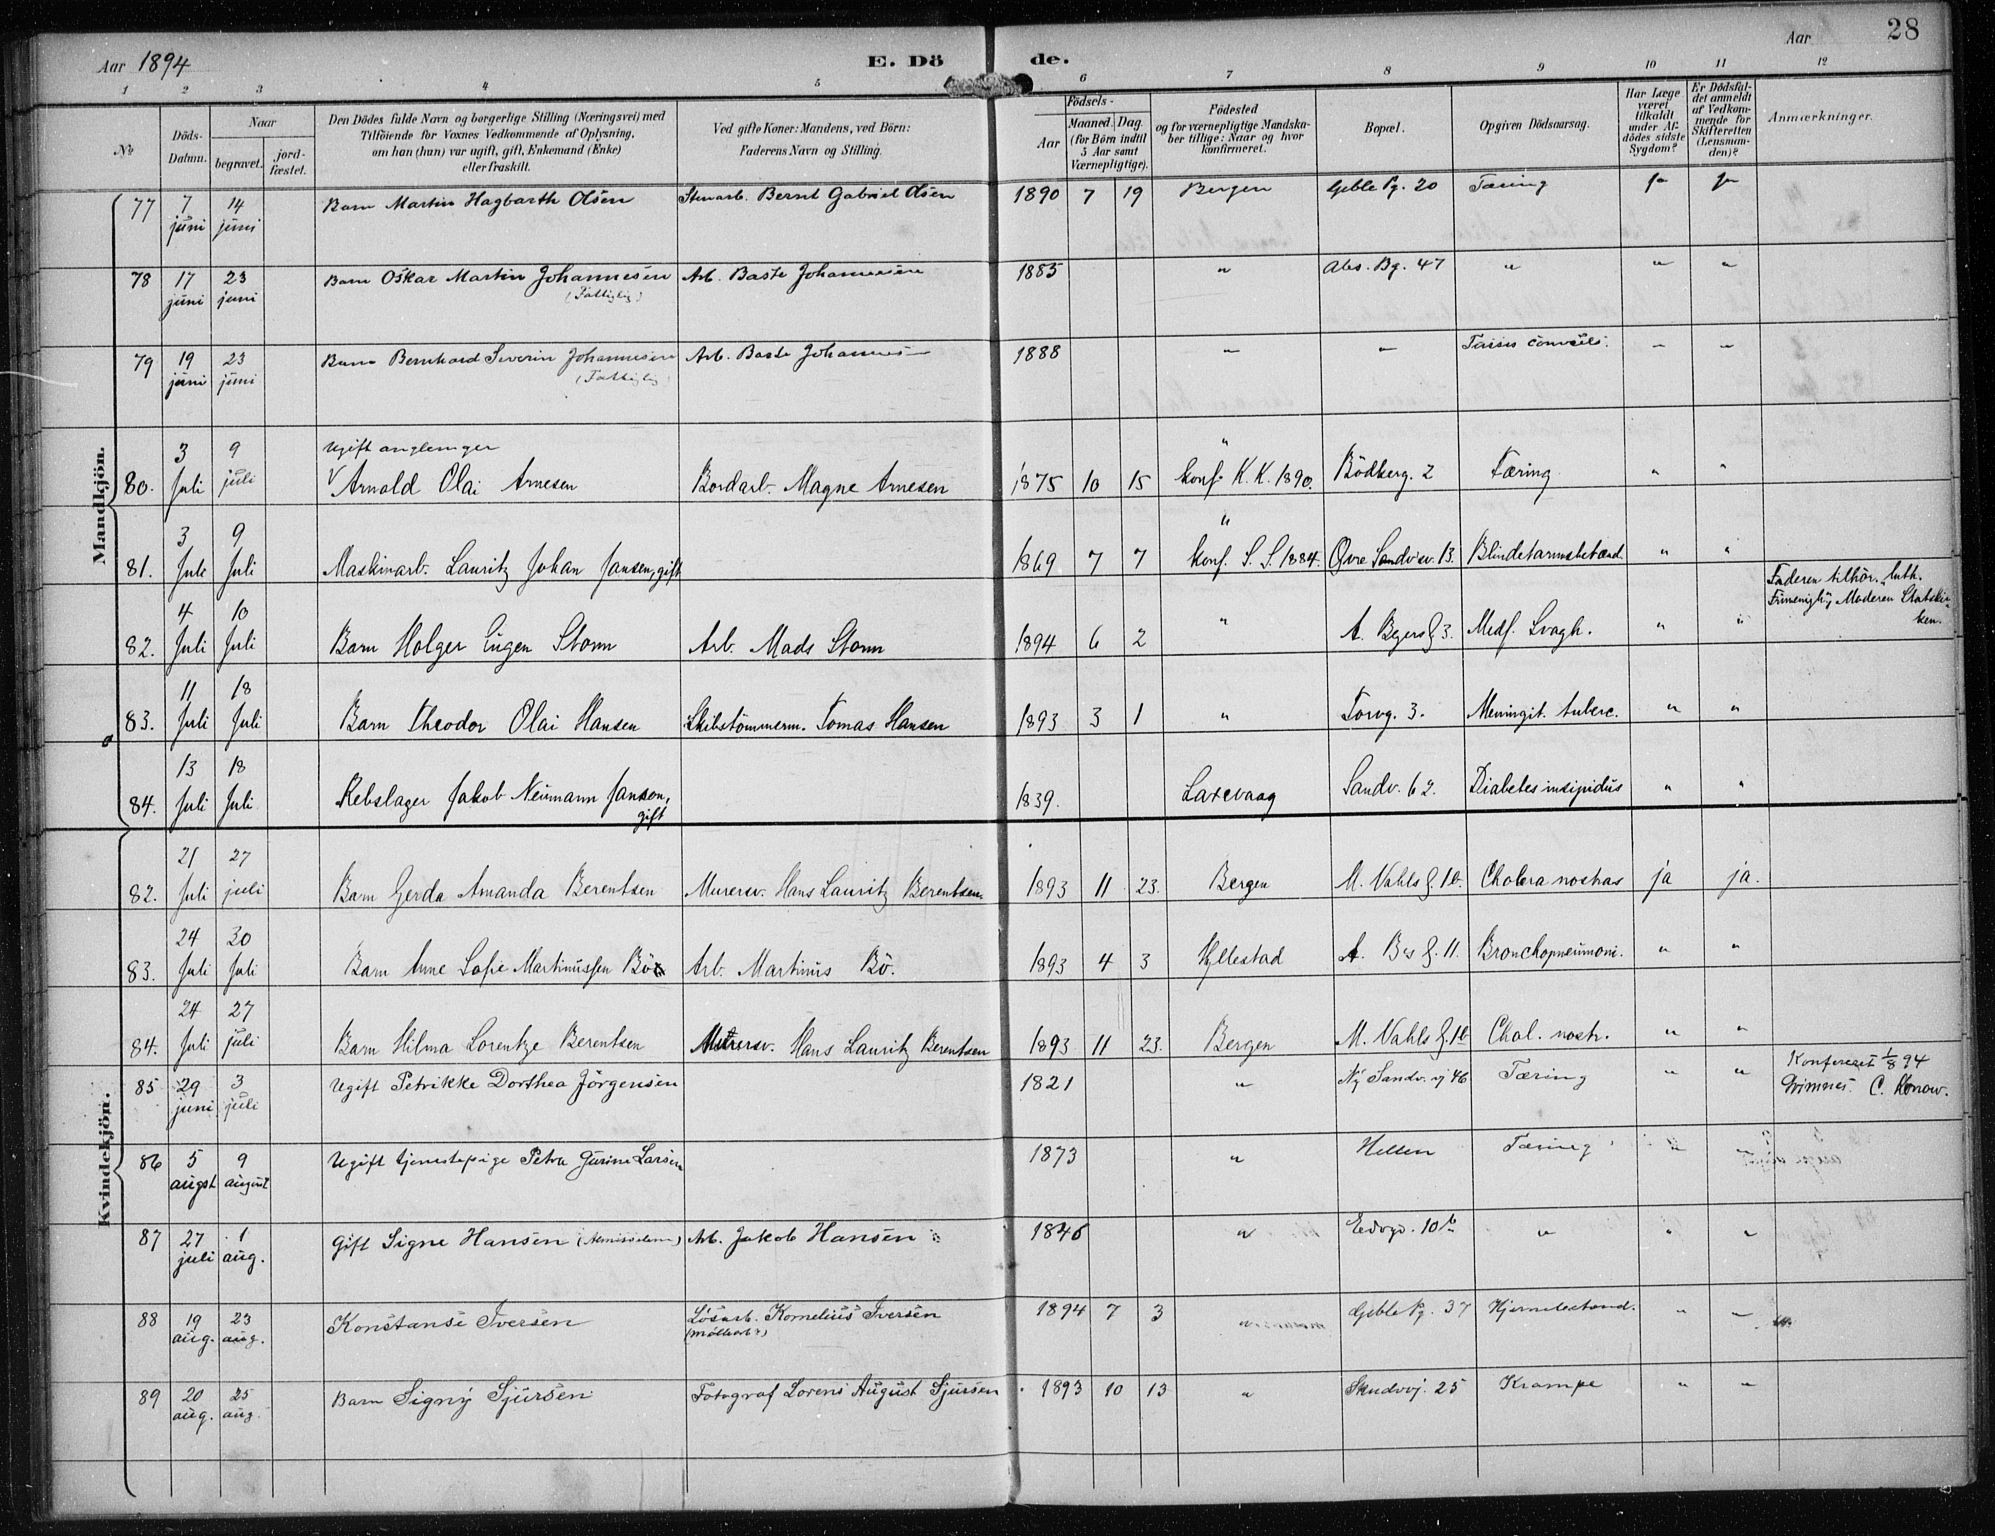 28
Aar 1894
E. Dö
de.
Aar
1 2 3 4 5 6 7 8 9 10 11 12
No
Döds-Datum.
Naar
begravet.
jord-fæstet.
Den Dödes fulde Navn og borgerlige Stilling (Næringsvei) med
Tilföiende for Voxnes Vedkommende af Oplysning,
om han (hun) var ugift, gift, Enkemand (Enke)
eller fraskilt.
Ved gifte Koner: Mandens, ved Börn:
Faderens Navn og Stilling.
Födsels-
Aar
Maaned. Dag.
(for Börn indtil
5 Aar samt
Værnepligtige).
Födested
og for værnepligtige Mandska-
ber tillige: Naar og hvor
konfirmeret.
Bopæl.
Opgiven Dödsaarsag.
Har Læge
været
tilkaldt
under Af-
dödes sidste
Sygdom?
Er Dödsfal-
det anmeldt
af Vedkom-
mende for
Skifteretten
(Lensman-
den)?
Anmærkninger.
Mandkjön.
77 7 juni 14 juni Barn Martin Hagbarth Olsen Stenarb. Bernt Gabriel Olsen 1890 7 19 Bergen Geble Pg. 20 Tæring ja ja
78 17 juni 23 juni Barn Oskar Martin Johannesen (Fattiglig) Arb. Baste Johannesen 1885 " Bg. 47 " " "
79 19 juni 23 juni Barn Bernhard Severin Johannesen (Fattiglig) Arb. Baste Johannes 1888 " "
80. 3 Juli 9 juli Ugift
Arnold Olai Arnesen Bordarb. Magne Arnesen 1875 10 15 " Konf. K. K. 1890. Bödkerg. 2 Tæring " "
81. 3 Juli 9 Juli Maskinarb. Lauritz Johan Jansen, gift 1869 7 7 " Konf. S. S. 1884. Øvre Sandv.sv. 13. Blindetarmsbetænd " "
82. 4 Juli 10 Juli Barn Holger Eugen Storm Arb. Mads Storm 1894 6 2 " 3. Medf. Svagh. " " Faderen tilhör. luth. Frimenigh., Moderen Statskir-ken.
83. 11 Juli 18 Juli Barn Theodor Olai Hansen Skibstömmerm. Tomas Hansen 1893 3 1 " Torvg. 3. Meningit. tuberc. " "
84. 13 Juli 18 Juli Rebslager Jakob Neumann Jansen, gift 1839. Laxevaag Sandv. 62. Diabetes insipidus " "
Kvindekjön.
82. 21 Juli 27 juli Barn Gerda Amanda Berentsen Murersv. Hans Lauritz Berentsen 1893 11 23. Bergen M. Vahls g. 1b. Cholera nostras ja ja.
83. 24 Juli 30 Juli Barn Anne Sofie Martinussen Bö Arb. Martinus Bö. 1893 4 3 Hyllestad 11. Bronchopneumoni. " "
84. 24 Juli 27 juli Barn Hilma Lorentze Berentsen Murersv. Hans Lauritz Berentsen 1893 11 23. Bergen M. Vahls g. 1b Chol. nostr. " "
85 29 juni 3 juli Ugift Petrikke Dorthea Jörgensen 1821 " Ny Sandv. vj 46 Tæring " " Konfereret 1/8 94 Grimnes. C. Konow.
86 5 augst 9 august Ugift tjenestepige Petra Gurine Larsen 1873 " Hellen Tæring " "
87 27 juli 1 aug. Gift Signe Hansen Arb. Jakob Hansen 1846 " 10 b " " "
88 19 aug. 23 aug. Konstanse Iversen Lösarb. Kornelius Iversen (möllearb?) 1894 7 3 " Geble Pg. 37 Hjernebetænd. " "
89 20 aug. 25 aug. Barn Signy Sjursen Fotograf Lorens August Sjursen 1893 10 13 " Sandvvj. 25 Krampe " "